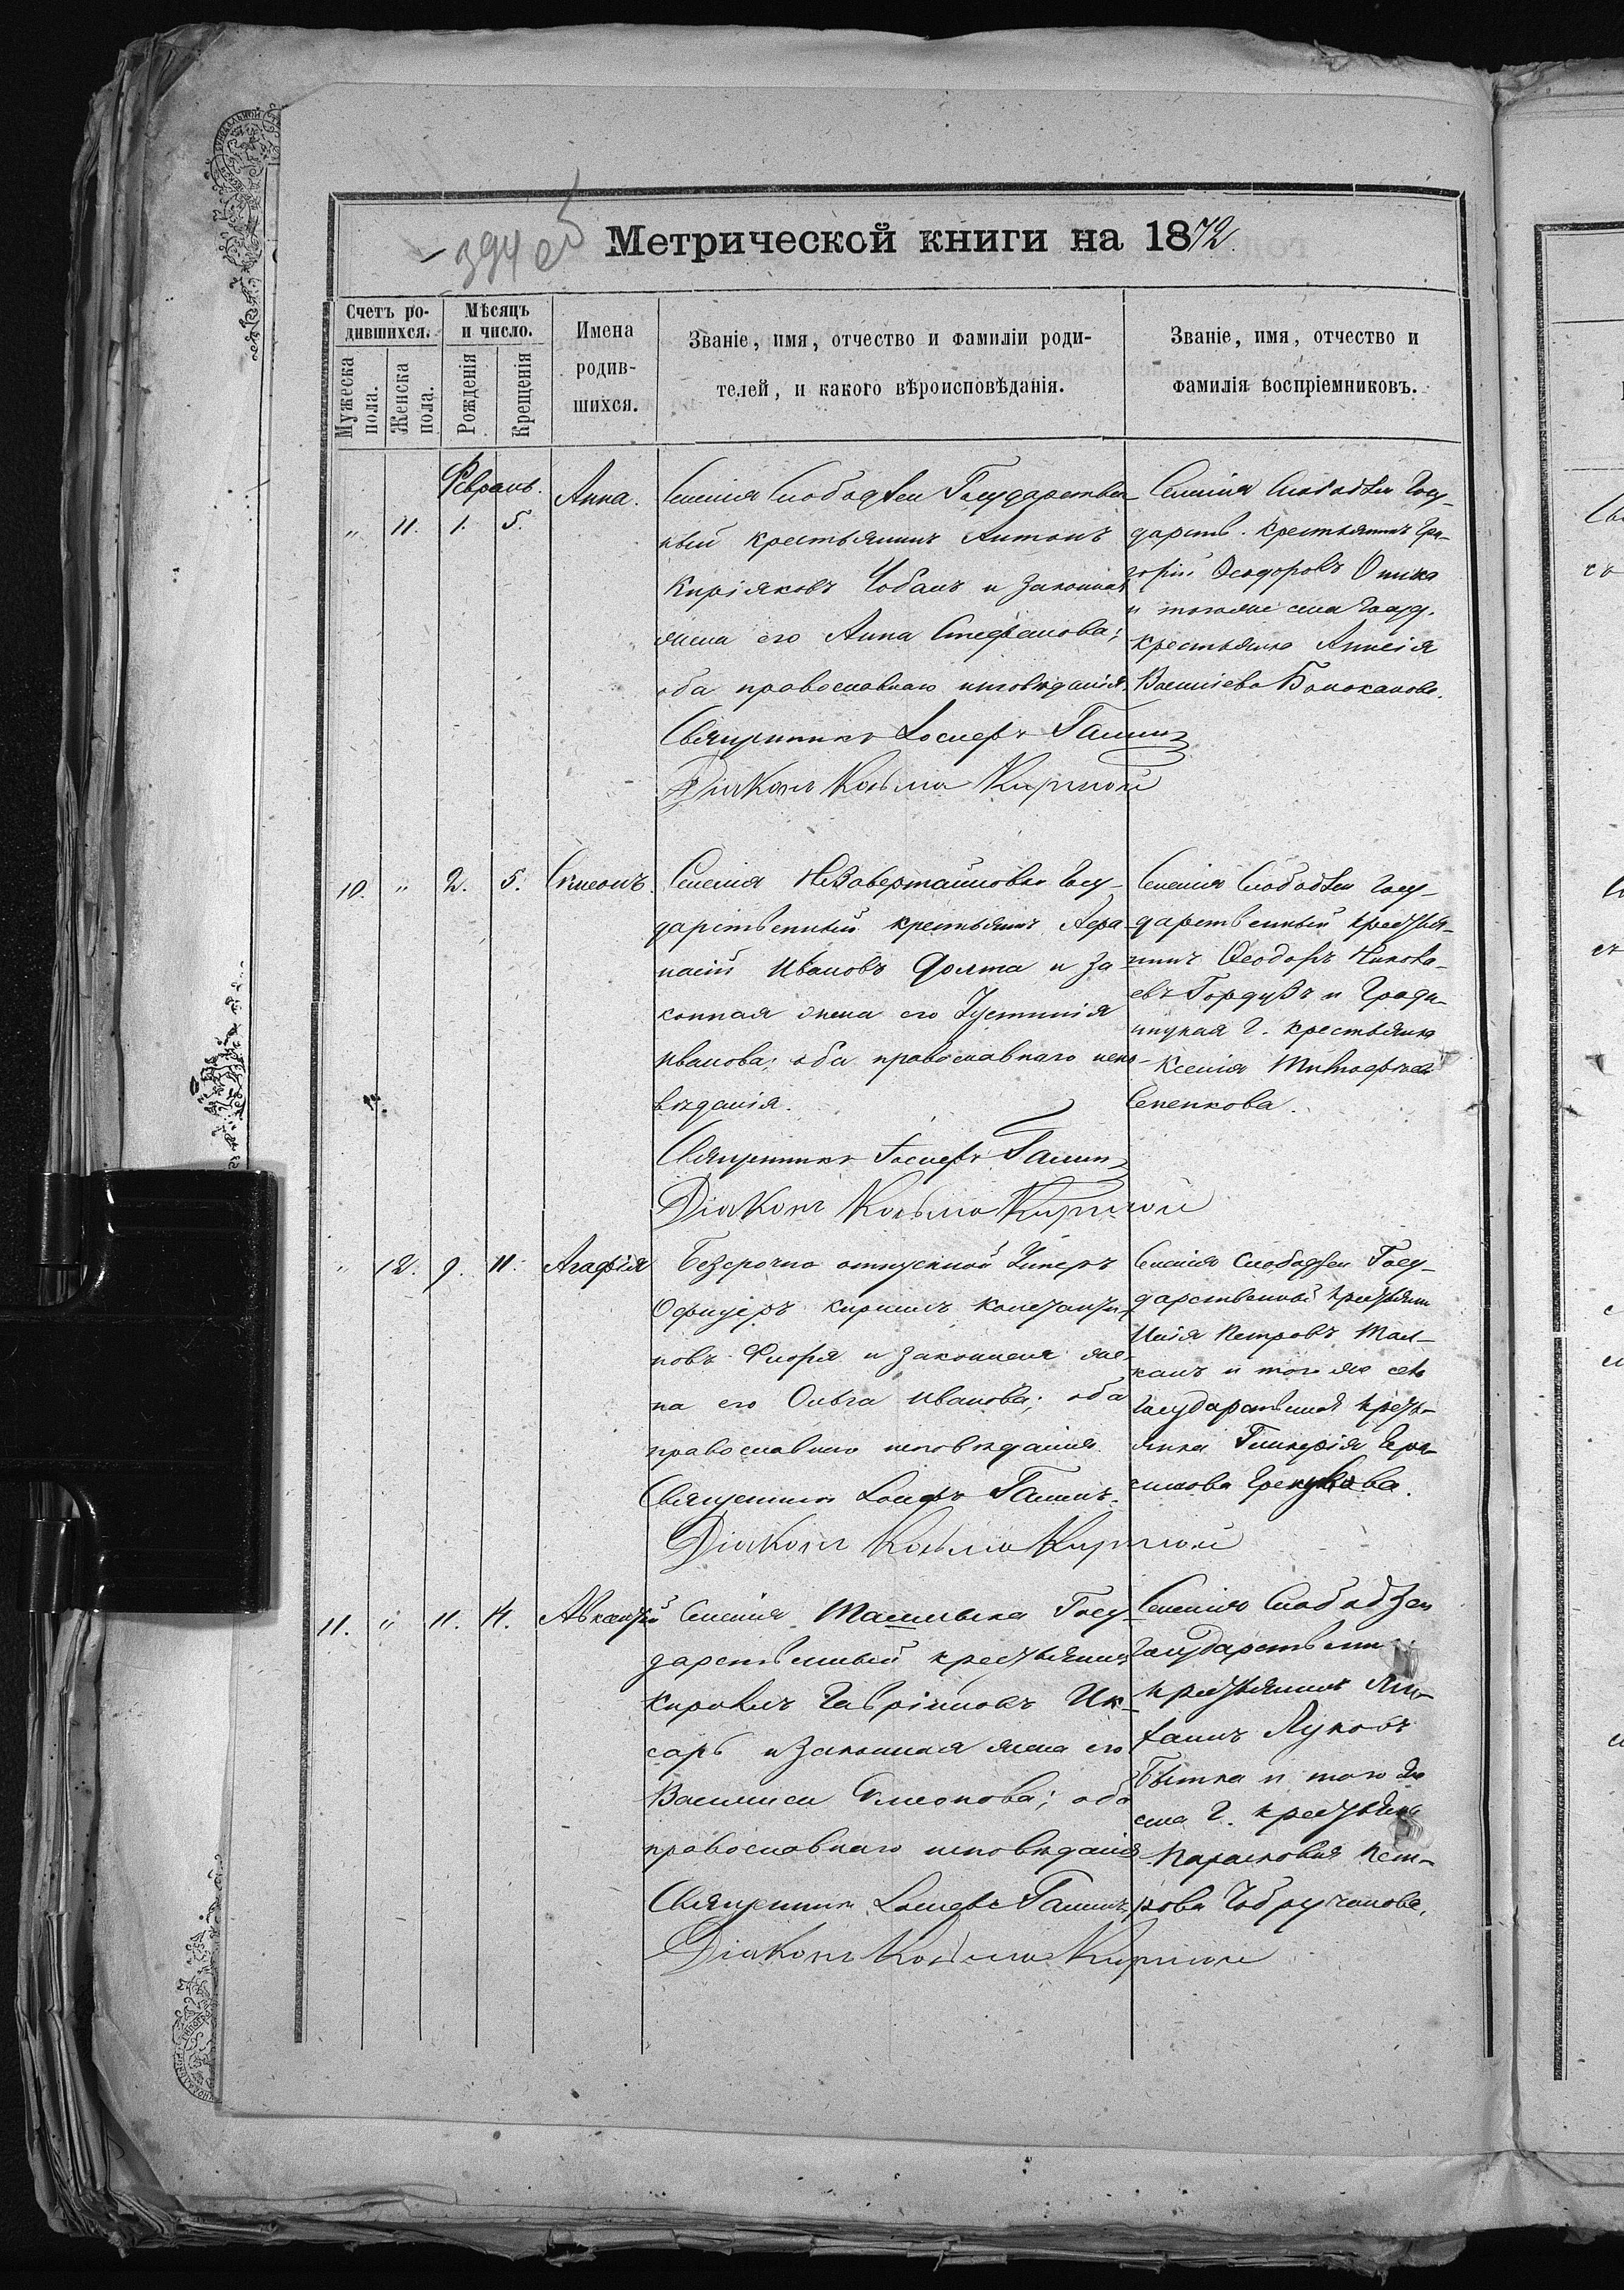 394 об
Метрической книги на 1872
Счетъ ро-
дившихся.
Мѣсяцъ
и число.
Имена
родив-
шихся.
Званіе, имя, отчество и фамиліи роди-
телей, и какого вѣроисповѣданія.
Званіе, имя, отчество и
фамилія воспріемниковъ.
Мужеска
пола.
Женска
пола.
Рожденія
Крещенія
Февраль.
" 11. 1. 5. Анна.
Селенія Слободзеи Государствен-
ный крестьянинъ Антонъ
Киріяковъ Чобанъ и законная
жена его Анна Стефанова;
оба православнаго исповѣданія.
Священникъ Іосифъ
Діаконъ Козьма
Селенія Слободзеи Госу-
дарств. крестьянинъ Гри-
горій Ѳеодоровъ
и тогоже села Госуд.
крестьянка
Василіева
10. " 2. 5. Симеонъ.
Селенія Незавертайловки Госу-
дарственный крестьянинъ Афа-
насій Ивановъ Долта и за-
конная жена его Іустинія
Иванова; оба православнаго испо-
вѣданія.
Священникъ Іосифъ
Діаконъ Козьма
Селенія Слободзеи Госу-
дарственный крестья-
нинъ Ѳеодоръ Никола-
евъ и
Г. крестьянка
Ксенія
Сепенкова.
" 12. 9. 11. Агафія
Безсрочно отпускной Унтеръ
Офицеръ Кириллъ Константи-
новъ Флоря и законная же-
на его Ольга Иванова; оба
православнаго исповѣданія.
Священникъ Іосифъ
Діаконъ Козьма
Селенія Слободзеи Госу-
дарственный крестьянин
Илія Петровъ
и того же села
Государственная кресть-
янка Гликерія Гера-
симова
11. " 11. 14. Авксентій
Селенія Ташлыка Госу-
дарственный крестьянинъ
Кириллъ Гавріиловъ
и законная жена его
Василиса Симеонова; оба
православнаго исповѣданія
Священникъ Іосифъ
Діаконъ Козьма
Селенія Слободзеи
Государственный
крестьянинъ
Луковъ
и того же
села Г. крестьянка
Параскевія Пет-
рова Чобручанова.